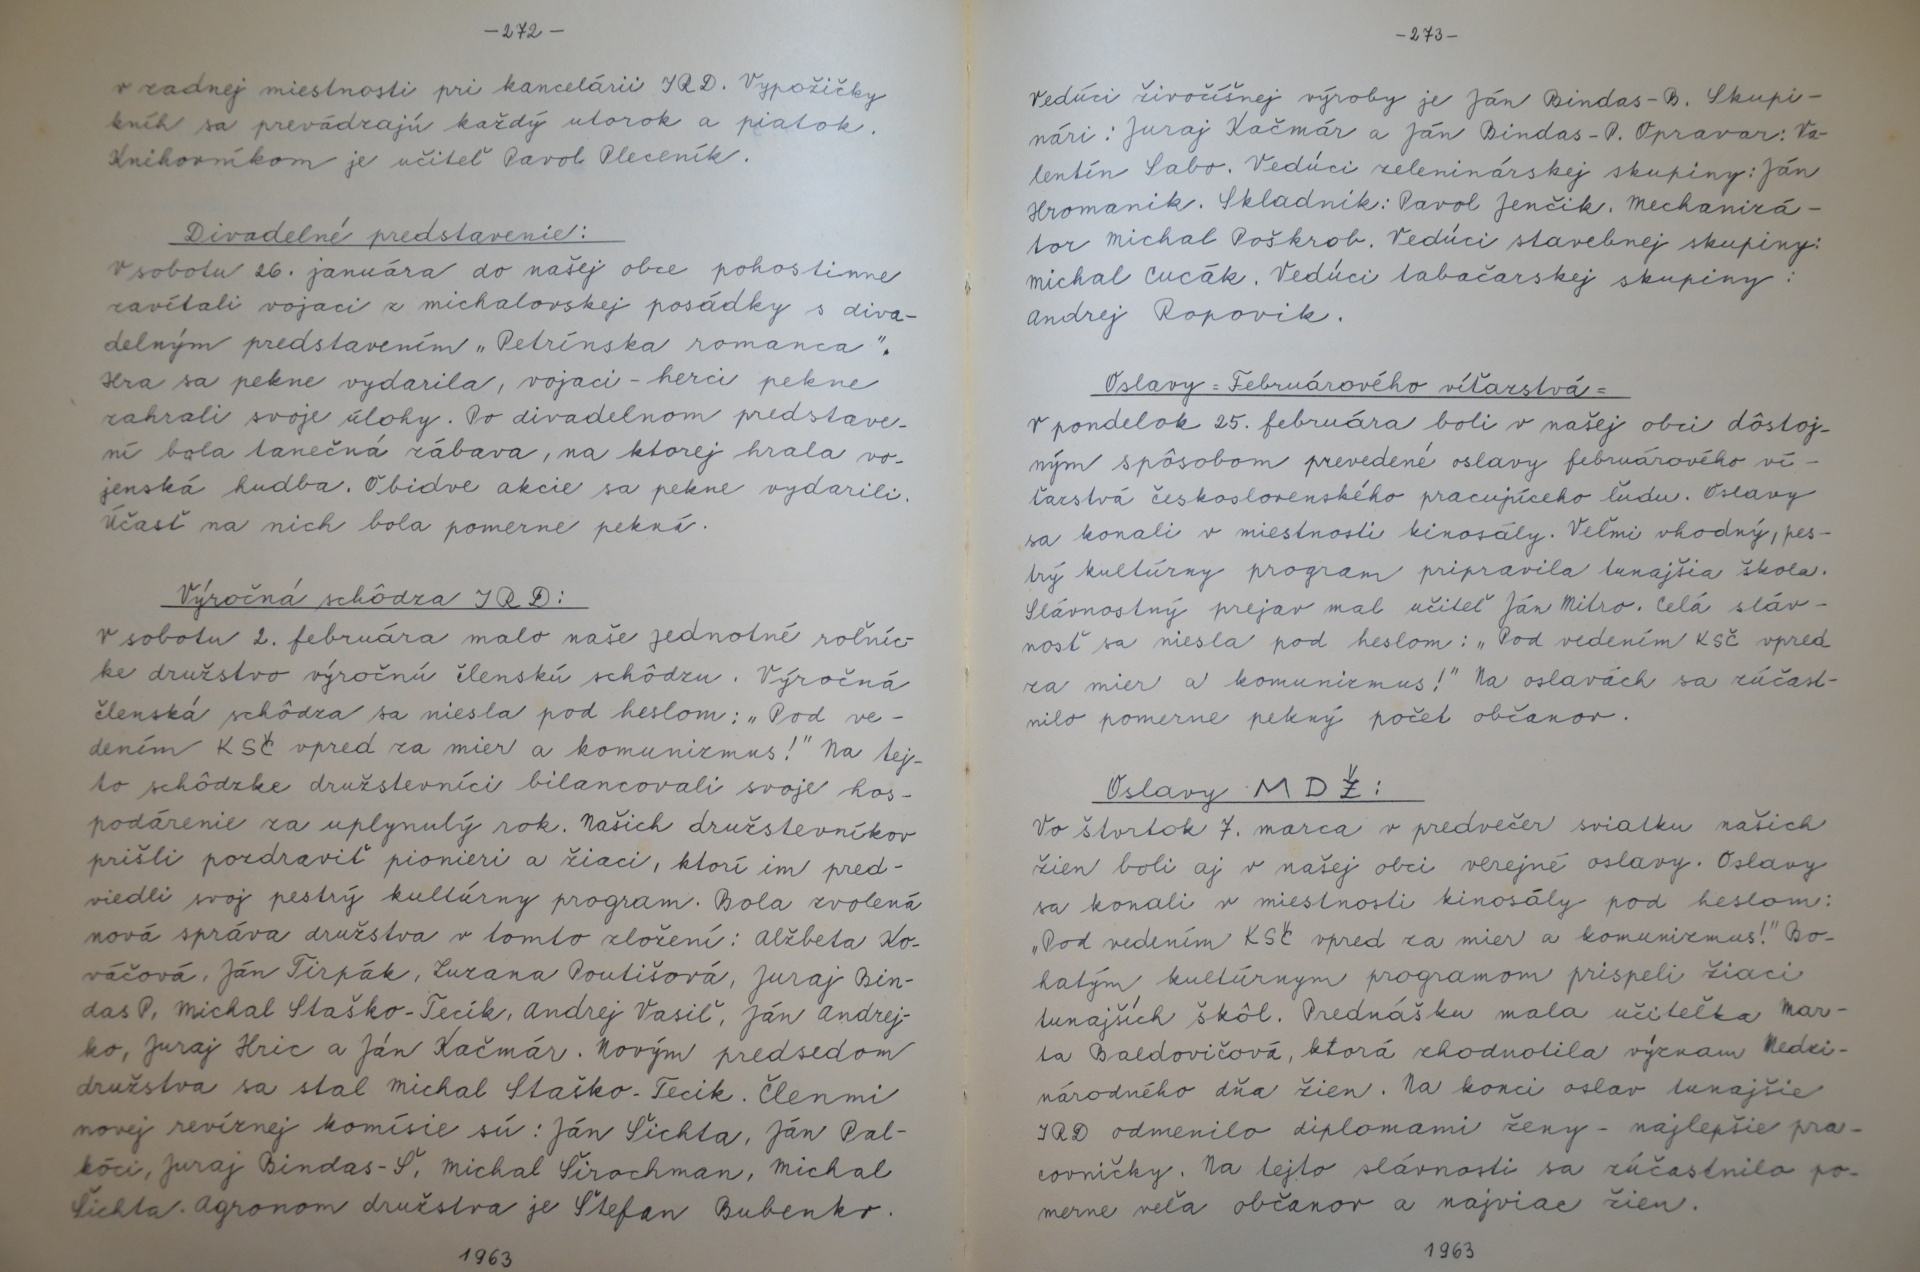 -272-
v zadnej miestnosti pri kancelárii JRD. Vypožičky
kníh sa prevádzajú každý utorok a piatok.
Knihovníkom je učiteľ Pavol Pleceník.
Divadelné predstavenie:
V sobotu 26. januára do našej obce pohostinne
zavítali vojaci z michalovskej posádky s diva-
delným predstavením „Petrínska romanca".
Hra sa pekne vydarila, vojaci - herci pekne
zahrali svoje úlohy. Po divadelnom predstave-
ní bola tanečná zábava, na ktorej hrala vo-
jenská hudba. Obidve akcie sa pekne vydarili.
Účasť na nich bola pomerne pekná.
Výročná schôdza JRD:
V sobotu 2. februára malo naše jednotné roľníc-
ke družstvo výročnú členskú schôdzu. Výročná
členská schôdza sa niesla pod heslom: „Pod ve-
dením KSČ vpred za mier a komunizmus!" Na tej-
to schôdzke družstevníci bilancovali svoje hos-
podárenie za uplynulý rok. Našich družstevníkov
prišli pozdraviť pionieri a žiaci, ktorí im pred-
viedli svoj pestrý kultúrny program. Bola zvolená
nová správa družstva v tomto zložení: Alžbeta Ko-
váčová, Ján Tirpák, Zuzana Poutišová, Juraj Bin-
das P, Michal Staško-Tecík, Andrej Vasiľ, Ján Andrej-
ko, Juraj Hric a Ján Kačmár. Novým predsedom
družstva sa stal Michal Staško-Tecik. Členmi
novej revíznej komísie sú: Ján Šichta, Ján Pal-
kóci, Juraj Bindas-Š, Michal Širochman, Michal
Šichta. Agronom družstva je Štefan Bubenko.
1963
-273-
Vedúci živočíšnej výroby je Ján Bindas-B. Skupi-
nári: Juraj Kačmár a Ján Bindas-P. Opravar: Va-
lentín Sabo. Vedúci zeleninárskej skupiny: Ján
Hromanik. Skladník: Pavol Jenčik. Mechanizá-
tor Michal Poškrob. Vedúci stavebnej skupiny:
Michal Cucák. Vedúci tabačarskej skupiny:
Andrej Ropovik.
Oslavy = Februárového víťazstvá=
V pondelok 25. februára boli v našej obci dôstoj-
ným spôsobom prevedené oslavy februárového ví-
ťazstvá československého pracujúceho ľudu. Oslavy
sa konali v miestnosti kinosály. Veľmi vhodný, pes-
trý kultúrny program pripravila tunajšia škola.
Slávnostný prejav mal učiteľ Ján Mitro. Celá sláv-
nosť sa niesla pod heslom: „Pod vedením KSČ vpred
za mier a komunizmus!" Na oslavách sa zúčast-
nilo pomerne pekný počet občanov.
Oslavy MDŽ:
Vo štvrtok 7. marca v predvečer sviatku našich
žien boli aj v našej obci verejné oslavy. Oslavy
sa konali v miestnosti kinosály pod heslom:
„Pod vedením KSČ vpred za mier a komunizmus!" Bo-
hatým kultúrnym programom prispeli žiaci
tunajších škôl. Prednášku mala učiteľka Mar-
ta Baldovičová, ktorá zhodnotila význam Medzi-
národného dňa žien. Na konci osláv tunajšie
JRD odmenilo diplomami ženy - najlepšie pra-
covničky. Na tejto slávnosti sa zúčastnilo po-
merne veľa občanov a najviac žien.
1963